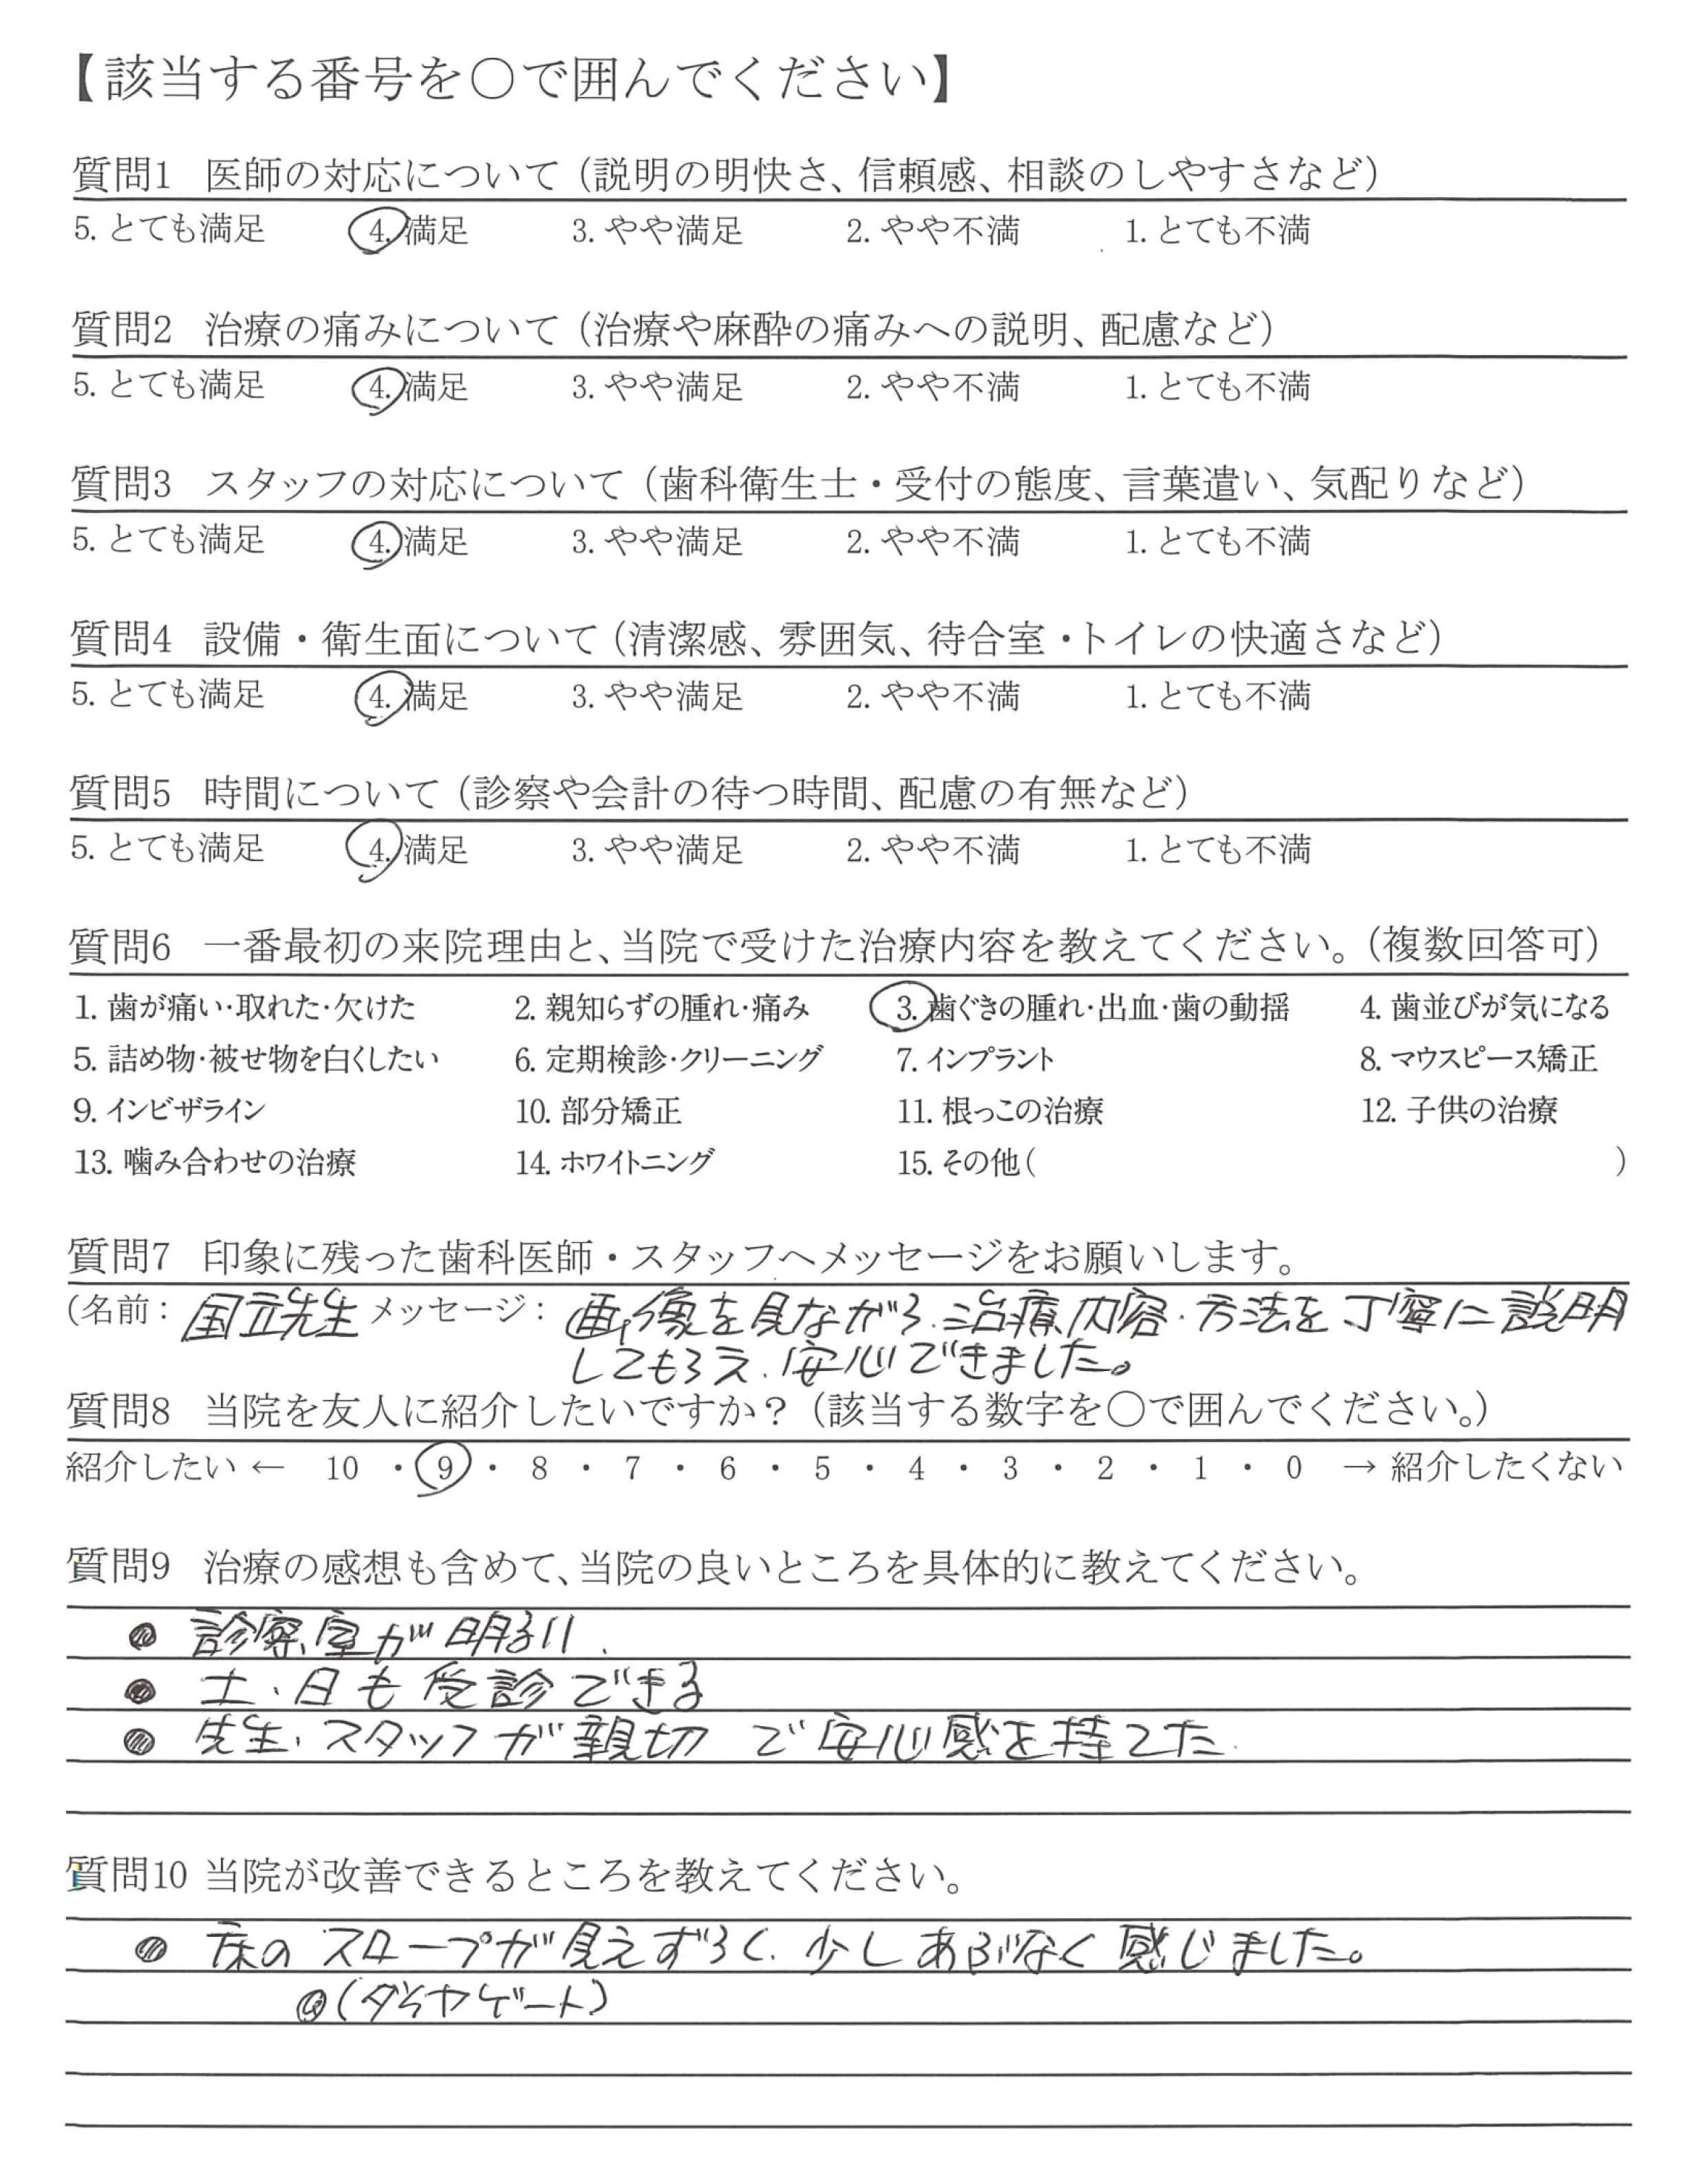 【該当する番号を〇で囲んでください】
質問1 医師の対応について（説明の明快さ、信頼感、相談のしやすさなど）
5. とても満足 4. 満足 3. やや満足 2. やや不満 1. とても不満
質問2 治療の痛みについて（治療や麻酔の痛みへの説明、配慮など）
5. とても満足 4. 満足 3. やや満足 2. やや不満 1. とても不満
質問3 スタッフの対応について（歯科衛生士・受付の態度、言葉遣い、気配りなど）
5. とても満足 4. 満足 3. やや満足 2. やや不満 1. とても不満
質問4 設備・衛生面について（清潔感、雰囲気、待合室・トイレの快適さなど）
5. とても満足 4. 満足 3. やや満足 2. やや不満 1. とても不満
質問5 時間について（診察や会計の待つ時間、配慮の有無など）
5. とても満足 4. 満足 3. やや満足 2. やや不満 1. とても不満
質問6 一番最初の来院理由と、当院で受けた治療内容を教えてください。（複数回答可）
1. 歯が痛い・取れた・欠けた 2. 親知らずの腫れ・痛み 3. 歯ぐきの腫れ・出血・歯の動揺 4. 歯並びが気になる
5. 詰め物・被せ物を白くしたい 6. 定期検診・クリーニング 7. インプラント 8. マウスピース矯正
9. インビザライン 10. 部分矯正 11. 根っこの治療 12. 子供の治療
13. 噛み合わせの治療 14. ホワイトニング 15. その他（ ）
質問7 印象に残った歯科医師・スタッフへメッセージをお願いします。
（名前： 国立先生 メッセージ： 画像を見ながら、治療内容・方法を丁寧に説明
してもらえ、安心できました。
質問8 当院を友人に紹介したいですか？（該当する数字を〇で囲んでください。）
紹介したい ← 10 ・ 9 ・ 8 ・ 7 ・ 6 ・ 5 ・ 4 ・ 3 ・ 2 ・ 1 ・ 0 → 紹介したくない
質問9 治療の感想も含めて、当院の良いところを具体的に教えてください。
● 診察室が明るい.
● 土・日も受診できる
● 先生・スタッフが親切で安心感を持てた.
質問10 当院が改善できるところを教えてください。
● 床のスロープが見えずらく、少しあぶなく感じました。
@（ダイヤゲート）